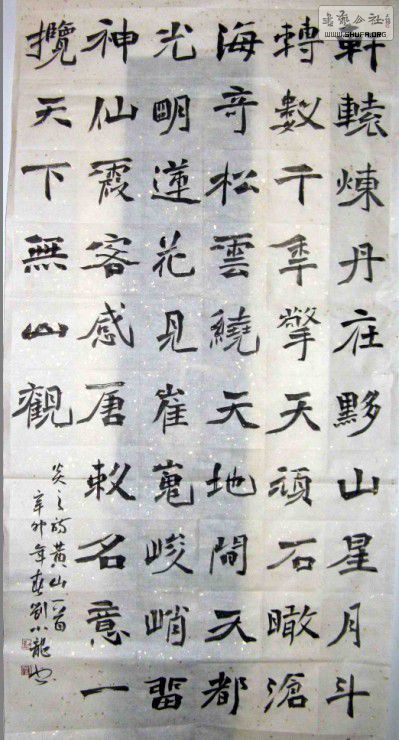 軒轅煉丹在黟山星月斗
轉數千年擎天頑石瞰滄
海奇松雲繞天地間天都
光明蓮花見崔嵬峻峭留
神仙霞客感唐敕名意一
攬天下無山觀
炎之詩黃山一首
辛卯年春劉小龍書
WWW.SHUFA.ORG